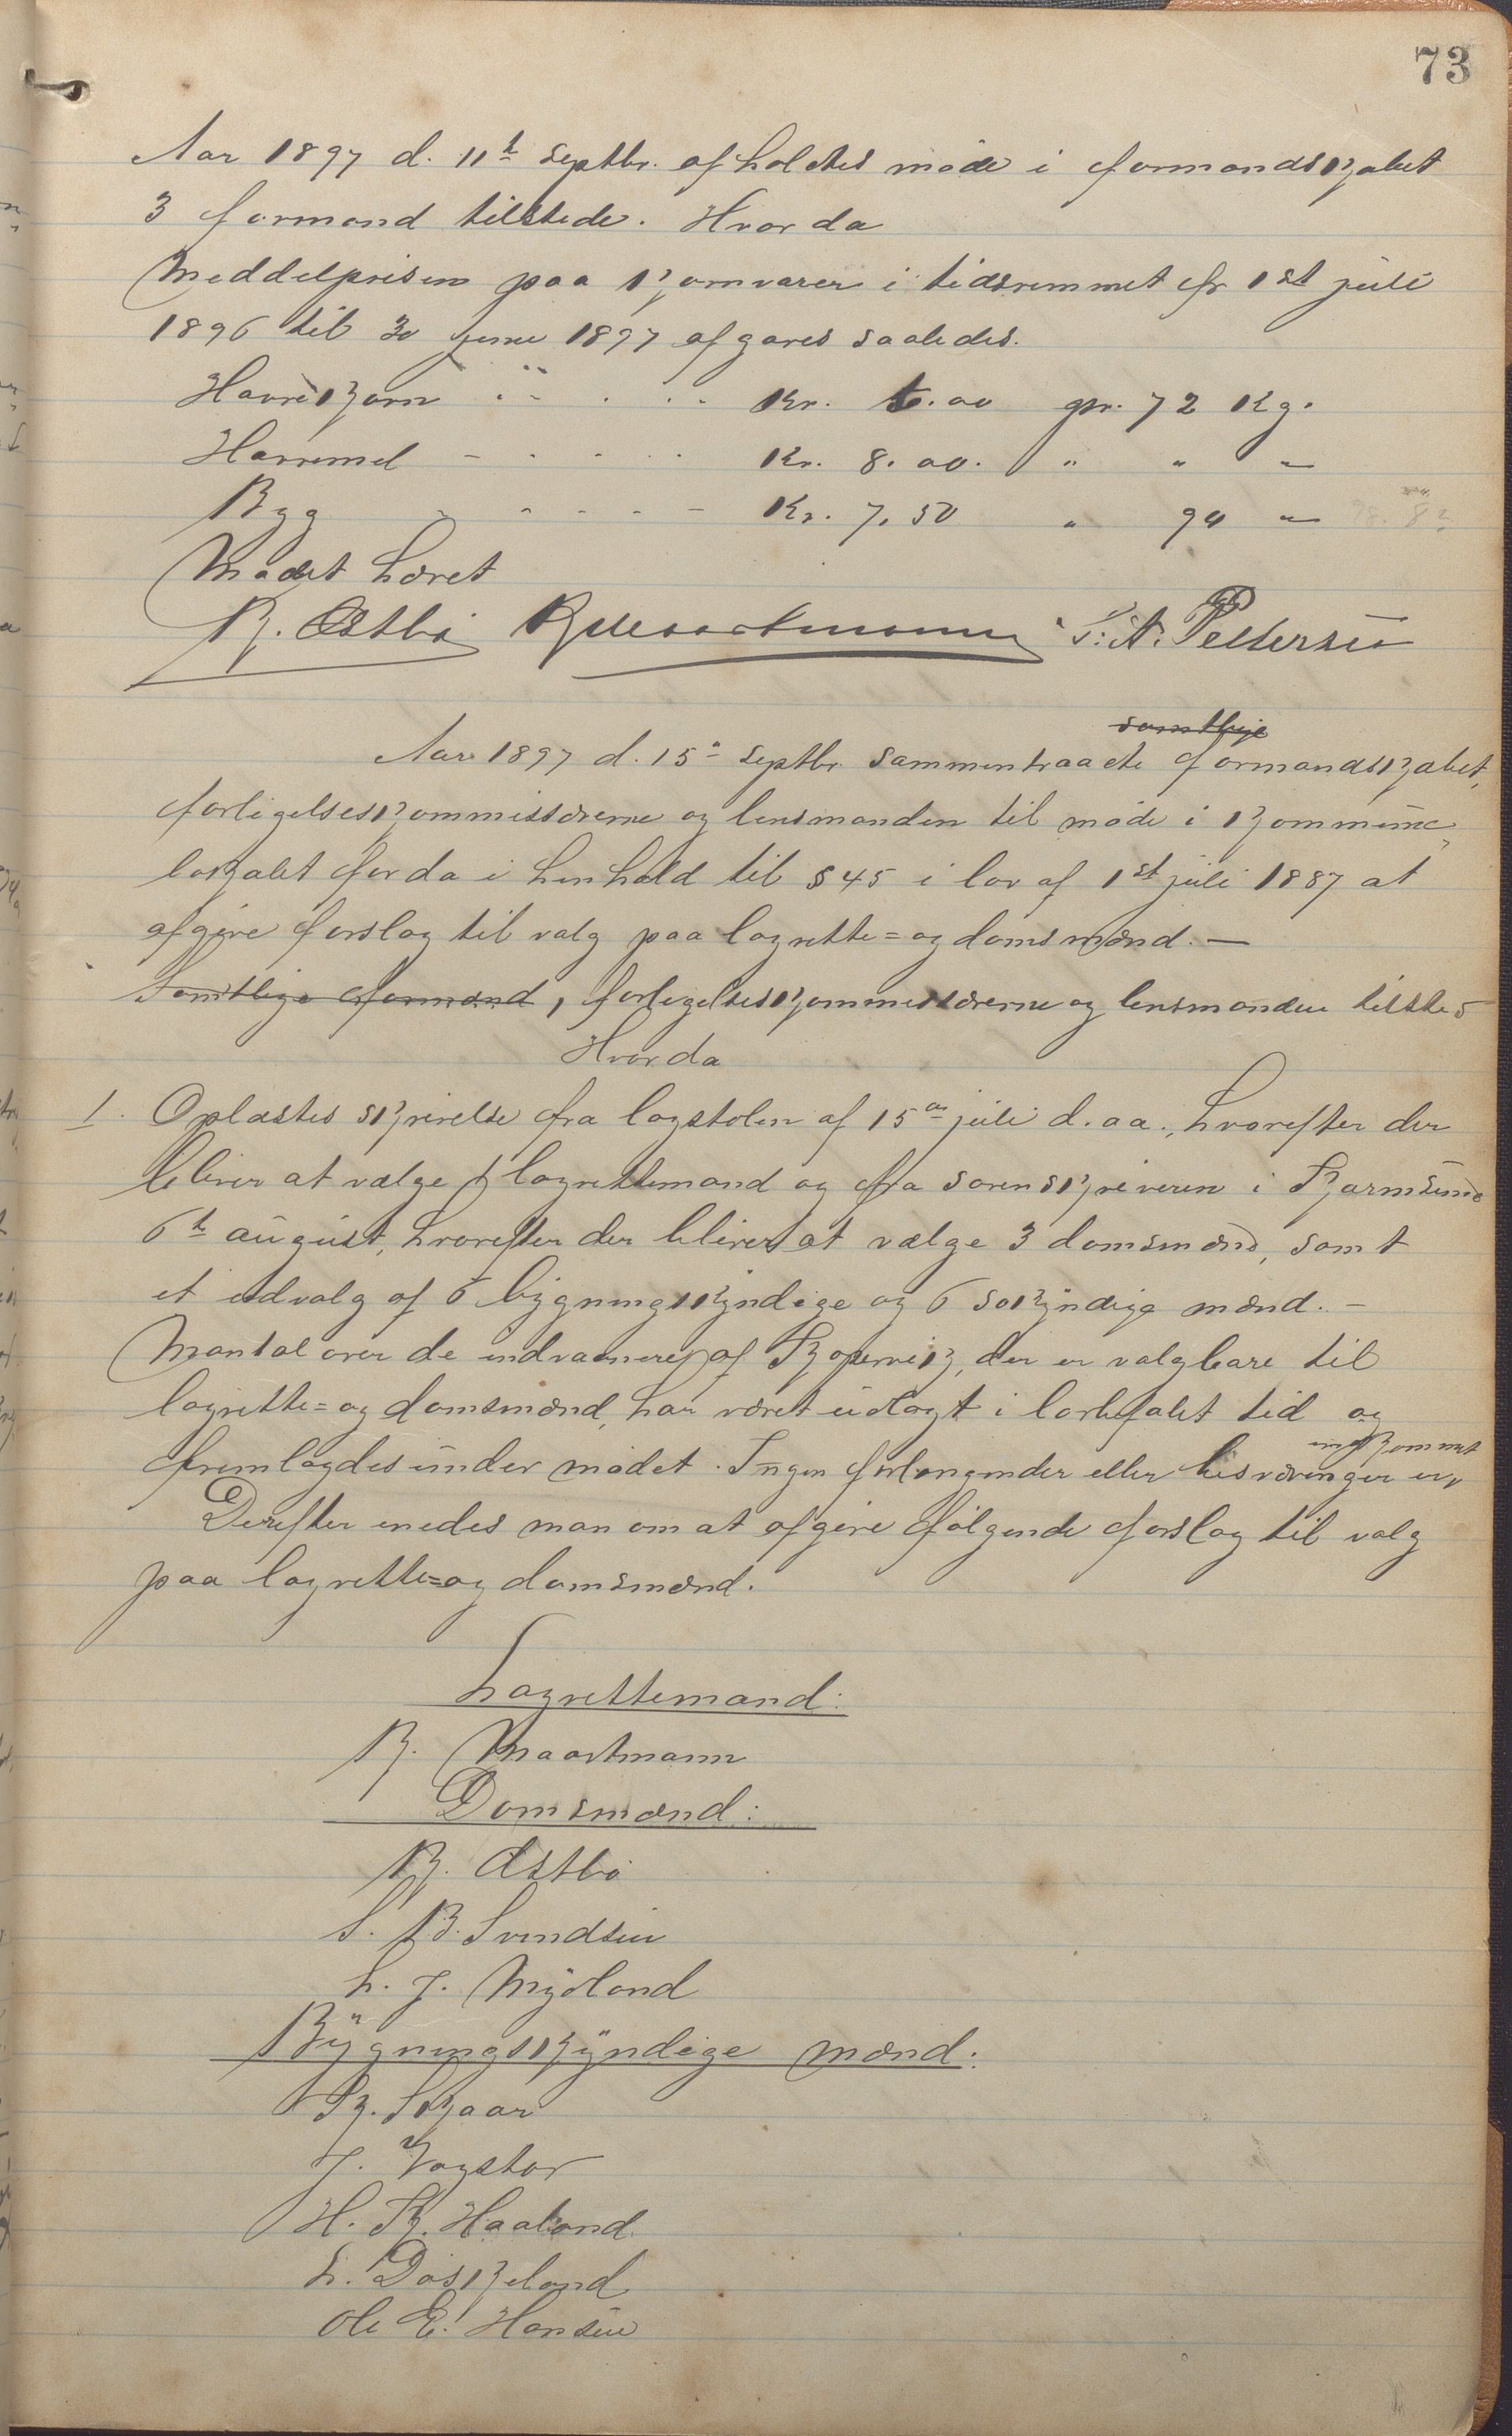 73
Aar 1897 d. 11te septbr. afholdtes møde i formandskabet
3 formænd tilstede. Hvor da
Middelprisen paa kornvarer i tidsrummet fr 1st juli
1896 til 30 june 1897 afgaves saaledes.
Havrekorn Kr. 6.00 pr. 72 Kg.
Havremel Kr. 8.00. " " "
Byg Kr. 7.50 " 90 "
Mødet hævet
K. Østbø K Maartmann S. A. Pedersen
samtlige
Aar 1897 d. 15de septbr. sammentraadte formandskabet,
forligelseskommissærerne og lensmanden til møde i kommune-
lokalet for da i henhold til § 45 i lov af 1st juli 1887 at
afgive forslag til valg paa lagrette= og domsmænd. —
Samtlige formænd, forligelseskommissærerne og lensmanden tilsted
Hvor da
1. Oplæstes skrivelse fra lagstolen af 15de juli d. aa., hvorefter der
bliver at vælge 1 lagrettemand og fra sorenskriveren i Karmsund
6te august, hvorefter der bliver at vælge 3 domsmænd, samt
et udvalg af 6 bygningskyndige og 6 søkyndige mænd. –
Mantal over de indvaanere af Kopervik, der er valgbare til
lagrette= og domsmænd, har været udlagt i lovbefalet tid og
indkommet
fremlagdes under mødet. Ingen forlangender eller besværinger er
Derefter enedes man om at afgive følgende forslag til valg
paa lagrette= og domsmænd.
Lagrettemand:
K. Maartmann
Domsmænd:
K. Østbø
S. B. Svendsen
L. J. Mydland
Bygningskyndige mænd:
K. Skaar
J. Vagstøl
H. K. Haaland
L. Døskeland
Ole E. Hansen